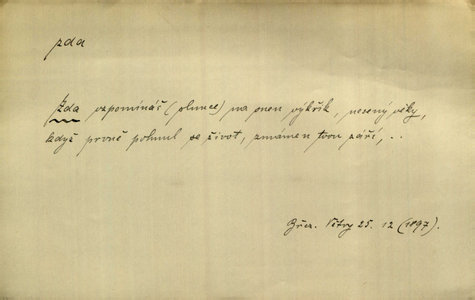 zda
Zda vzpomínáš (slunce) na onen výkřik, nesený věky,
když prvně pohnul se život, zmámen tvou září, ..
Břez. Větry 25. 12 (1897).